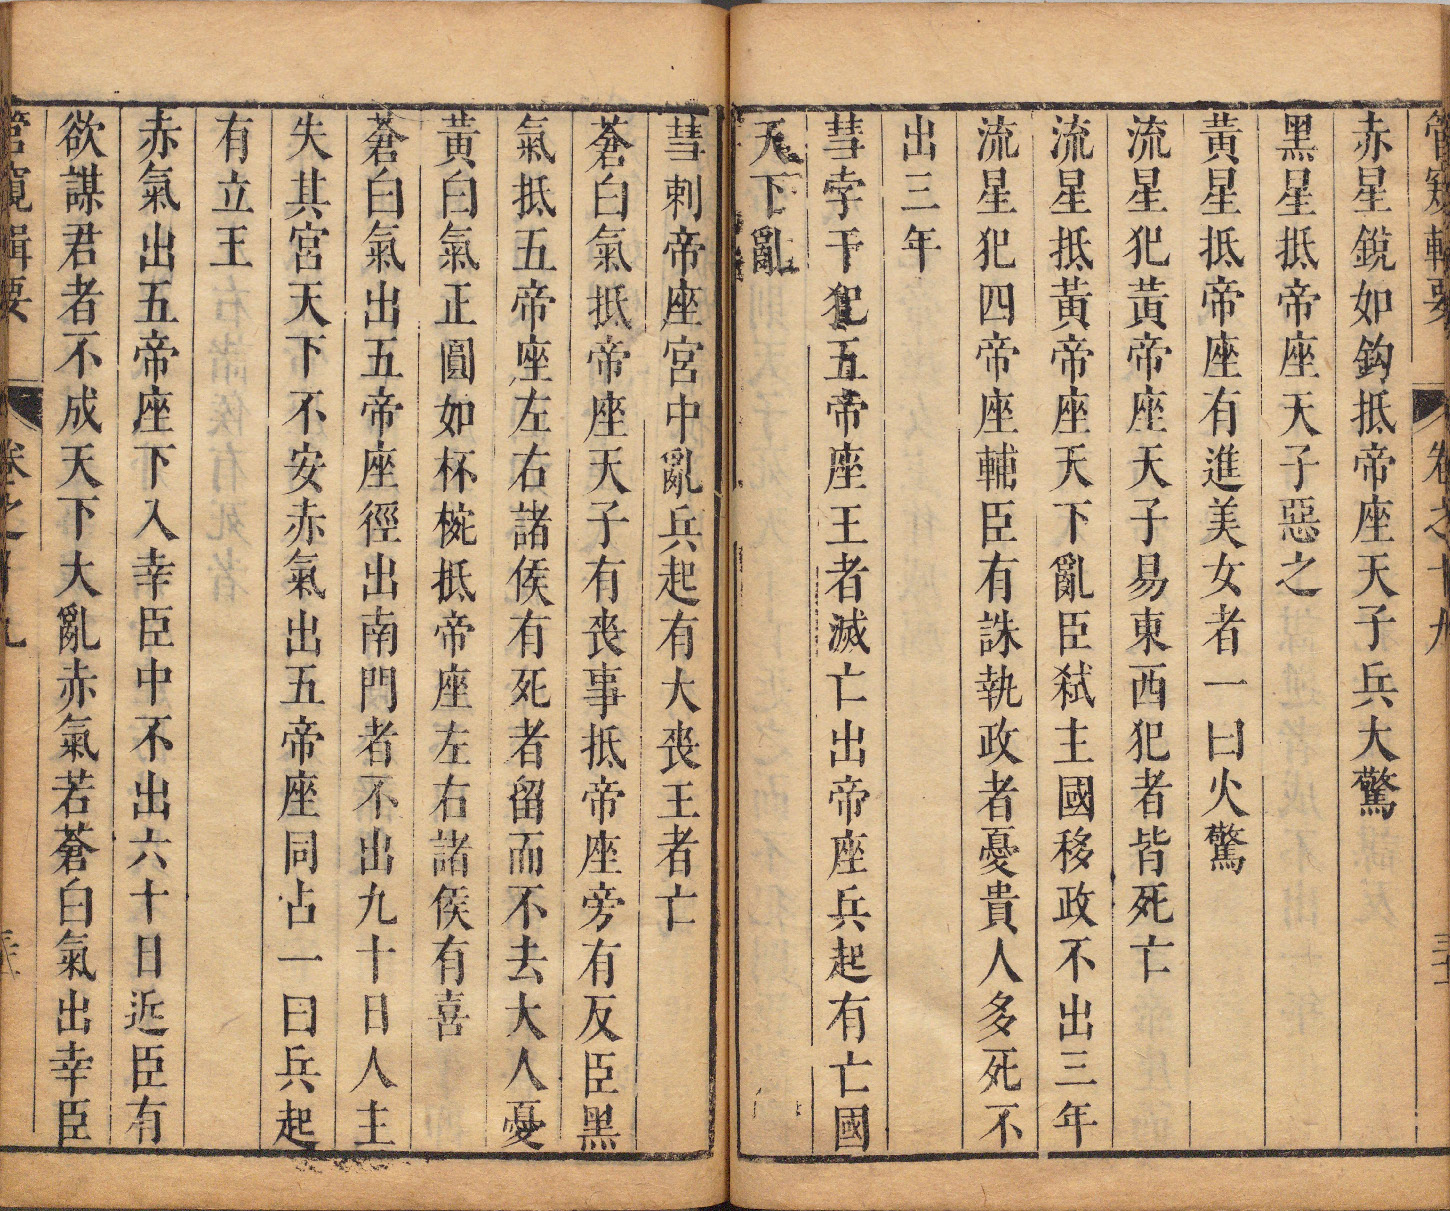 管窺輯要 卷之十九
赤星銳如鈎抵帝座天子兵大驚
黑星抵帝座天子惡之
黃星抵帝座有進美女者一曰火驚
流星犯黃帝座天子易東西犯者皆死亡
流星抵黃帝座天下亂臣弑主國移政不出三年
流星犯四帝座輔臣有誅執政者憂貴人多死不
出三年
彗孛干犯五帝座王者滅亡出帝座兵起有亡國
天下亂
彗刺帝座宮中亂兵起有大喪王者亡
蒼白氣抵帝座天子有喪事抵帝座旁有反臣黑
氣抵五帝座左右諸侯有死者留而不去大人憂
黃白氣正圓如杯椀抵帝座左右諸侯有喜
蒼白氣出五帝座徑出南門者不出九十日人主
失其宮天下不安赤氣出五帝座同占一曰兵起
有立王
赤氣出五帝座下入幸臣中不出六十日近臣有
欲謀君者不成天下大亂赤氣若蒼白氣出幸臣
管窺輯要 卷之十九